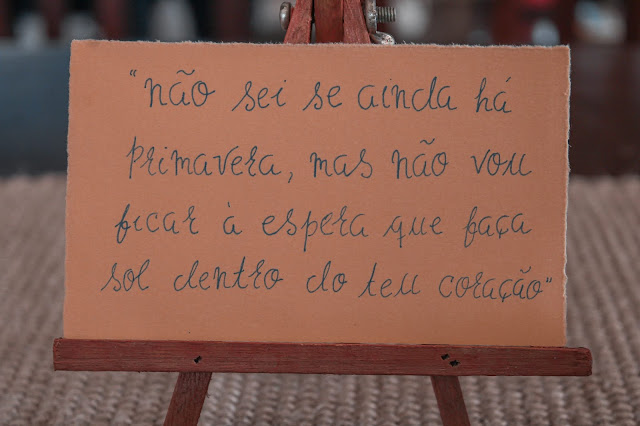 "não sei se ainda há
primavera, mas não vou
ficar à espera que faça
sol dentro do teu coração"